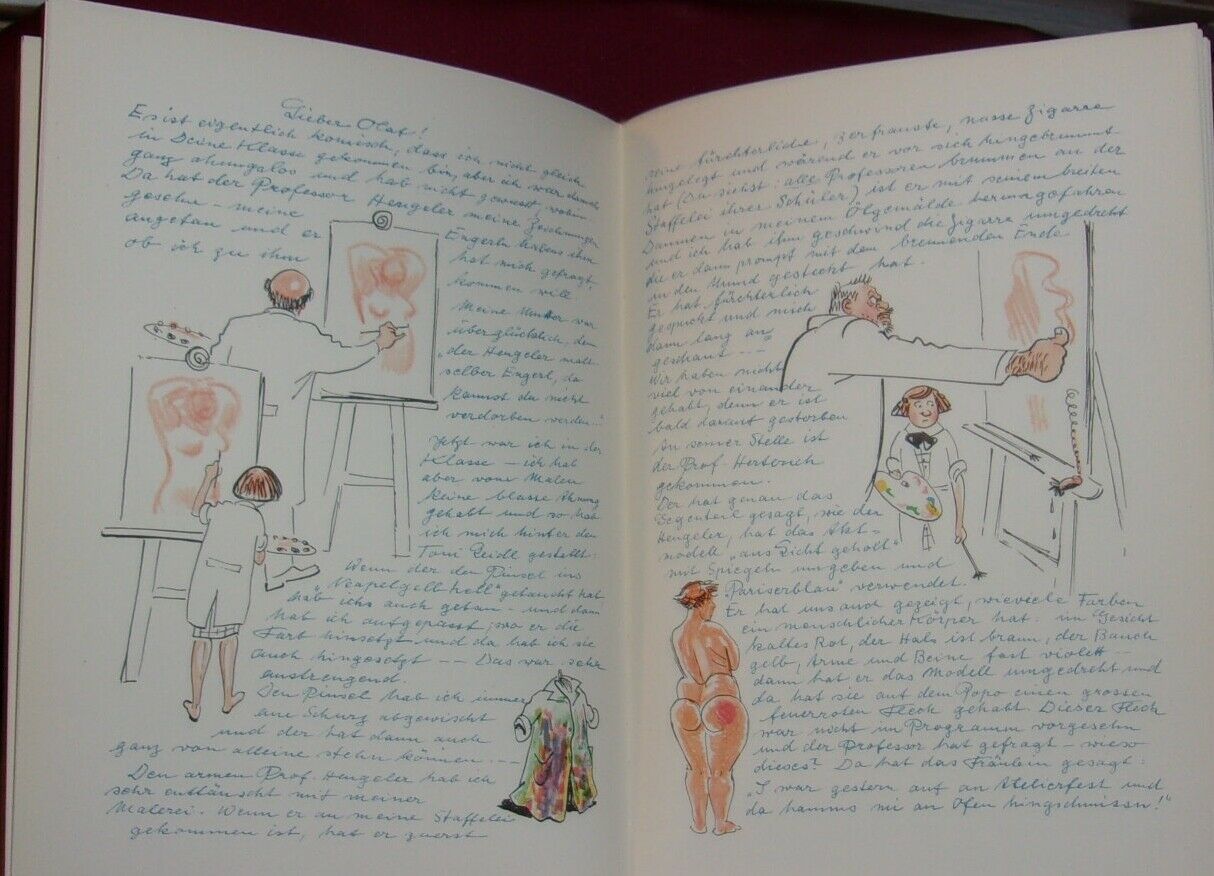 Lieber Olaf!
Es ist eigentlich komisch, dass ich nicht gleich
in Deine Klasse gekommen bin, aber ich war damals
ganz ahnungslos und hab nicht gewusst, wohin
Da hat der Professor Hengeler meine Zeichnungen
gesehn – meine Engerln haben ihm
angetan und er hat mich gefragt,
ob ich zu ihm kommen will!
Meine Mutter war
überglücklich, denn
„der Hengeler malt
selber Engerl, da
kannst da nicht
verdorben werden.."
Jetzt war ich in der
Klasse – ich hab
aber vom Malen
keine blasse Ahnung
gehabt und so hab
ich mich hinter den
Toni Leidl gestellt:
Wenn der den Pinsel ins
„Neapelgelb hell" getaucht hat
hab ichs auch getan – und dann
hab ich aufgepasst, wo er die
Farb hinsetzt und da hab ich sie
auch hingesetzt –– Das war sehr
anstrengend.
Den Pinsel hab ich immer
am Schurz abgewischt
und der hat dann auch
ganz von alleine stehn können –––
Den armen Prof. Hengeler hab ich
sehr enttäuscht mit meiner
Malerei. Wenn er an meine Staffelei
gekommen ist, hat er zuerst
seine fürchterliche, zerfranste, nasse Zigarre
hingelegt und wärend er vor sich hingebrummt
hat (Du siehst: alle Professoren brummen an der
Staffelei ihrer Schüler) ist er mit seinem breiten
Daumen in meinem Ölgemälde herumgefahren
und ich hab ihm geschwind die Zigarre umgedreht
die er dann prompt mit dem brennenden Ende
in den Mund gesteckt hat.
Er hat fürchterlich
gespuckt und mich
dann lang an
geschaut –––
Wir haben nicht
viel von einander
gehabt, denn er ist
bald darauf gestorben
An seiner Stelle ist
der Prof. Herterich
gekommen.
Der hat genau das
Gegenteil gesagt, wie der
Hengeler, hat das Akt-
modell „aus Licht geholt"
mit Spiegeln umgeben und
Pariserblau" verwendet.
Er hat uns auch gezeigt, wieviele Farben
ein menschlicher Körper hat: im Gesicht
kaltes Rot, der Hals ist braun, der Bauch
gelb, Arme und Beine fast violett –
dann hat er das Modell umgedreht und
da hat sie auf dem Popo einen grossen
feuerroten Fleck gehabt. Dieser Fleck
war nicht im Programm vorgesehn
und der Professor hat gefragt – wieso
dieses? Da hat das Fräulein gesagt:
„I war gestern auf an Atelierfest und
da hamms mi an Ofen hingschmissn!"